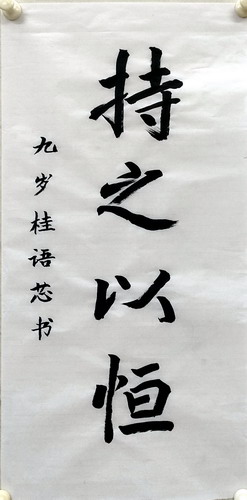 持之以恒
九岁桂语芯书